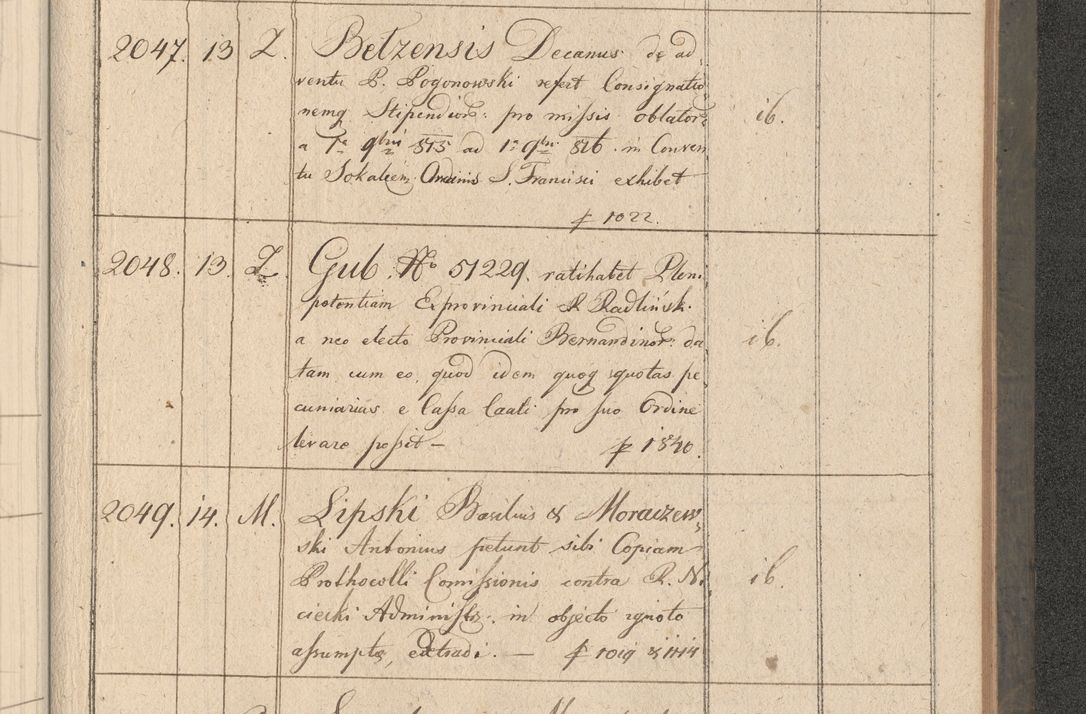 2047. 13 Z. Betzensis Decanus de ad
ventu P. Pogonowski refert Consignatio
nemq Stipendior: pro missis oblator:
a 1a 9bris 815 ad 1: 9bris 816 in Conven ib.
tu Sokalien Ordinis S. Francisci exhibet
p 1022.
2048. 13. Z. Gub. No 51229. ratihabet Pleni
potentiam Exprovinciali R Radlińsk.
a neo electo Provinciali Bernardinor: da ib.
tam cum eo, quod idem quoq quotas pe
cuniarias e Cassa Caali pro suo Ordine
levare possit — p 1840.
2049. 14. M. Lipski Basilius & Moraczew
ski Antonius petunt sibi Copiam
Prothocolli Comissionis contra R. Ni ib.
ciecki Administr. in objecto ignoto
assumptæ, extradi. — p 1019 & 1114